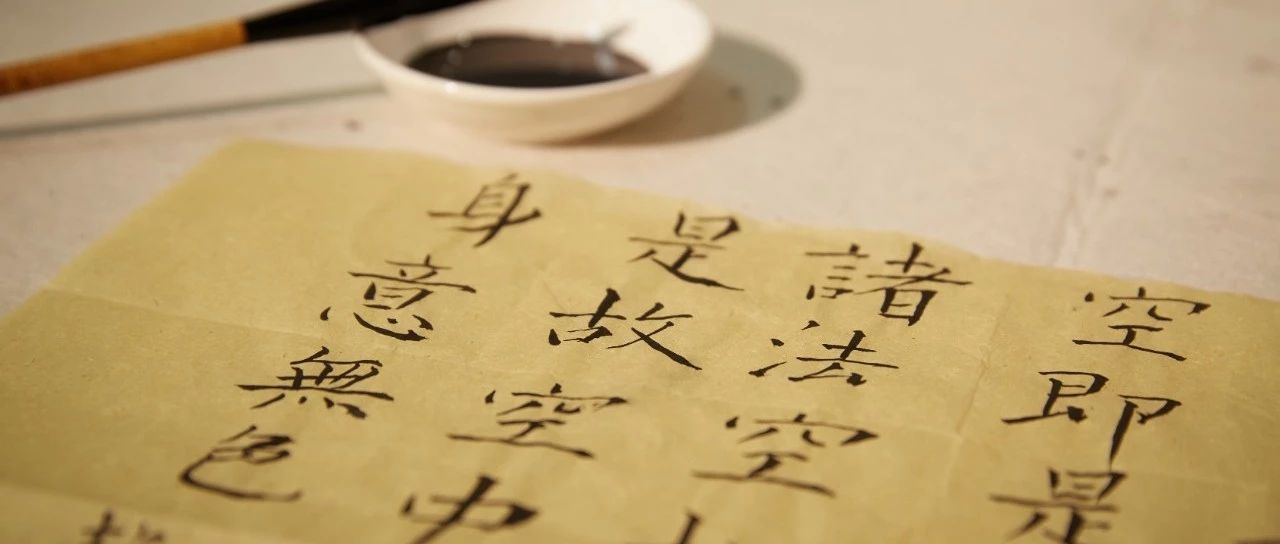 空即是
諸法空
是故空中
身意無色